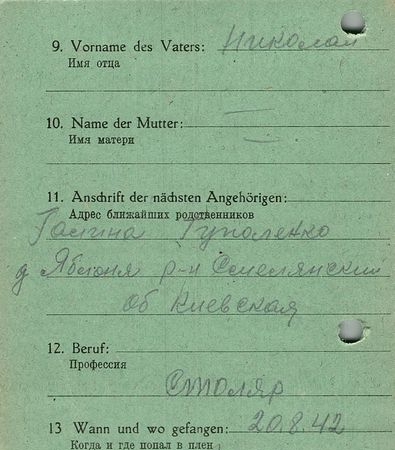 9. Vorname des Vaters: Николай
Имя отца
10. Name der Mutter: —
Имя матери —
11. Anschrift der nächsten Angehörigen:
Адрес ближайших родственников
Галина Гуполенко
д Яблоня р-н Смелянский
об Киевская
12. Beruf:
Профессия
Столяр
13 Wann und wo gefangen: 20.8.42
Когда и где попал в плен